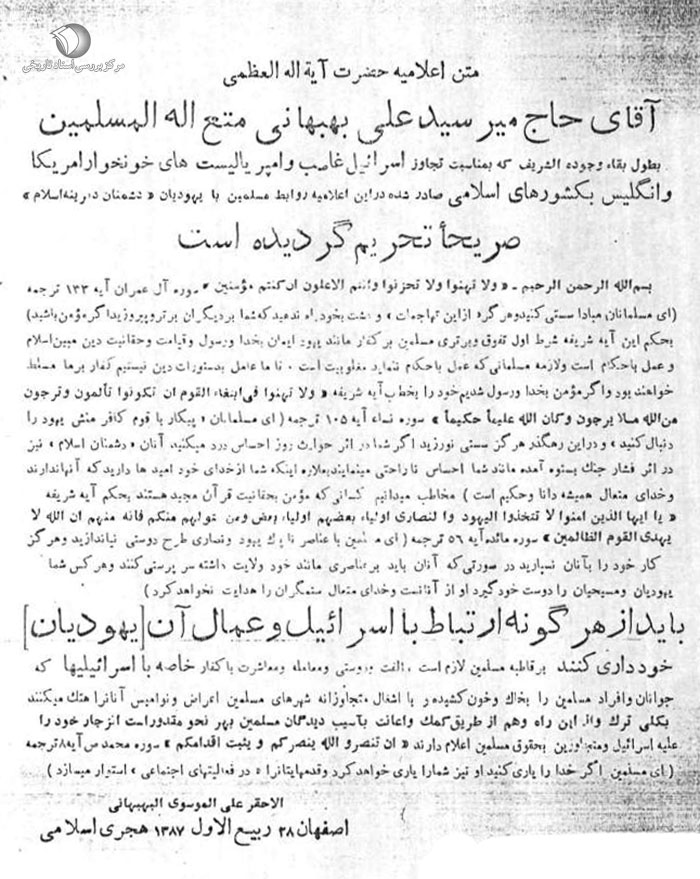 مرکز بررسی اسناد تاریخی
متن اعلامیه حضرت آیة اله العظمی
آقای حاج میر سید علی بهبهانی متع اله المسلمین
بطول بقاء وجوده الشریف که بمناسبت تجاوز اسرائیل غاصب وامپریالیست های خونخوار امریکا
وانگلیس بکشورهای اسلامی صادر شده دراین اعلامیه روابط مسلمین با یهودیان « دشمنان دیرینه اسلام »
صریحاً تحریم گردیده است
بسم الله الرحمن الرحیم ـ « ولا تهنوا ولا تحزنوا وانتم الاعلون ان کنتم مؤمنین » سوره آل عمران آیه ۱۳۳ ترجمه
(ای مسلمانان مبادا سستی کنید وهرگز از این تهاجمات و دهشت بخود راه ندهید که شما بر دیگران برتر و پیروزید اگر مؤمن باشید)
بحکم این آیه شریفه شرط اول تفوق وبرتری مسلمین بر کفار مانند یهود ایمان بخدا ورسول وقیامت وحقانیت دین مبین اسلام
و عمل باحکام است ولازمه مسلمانی که عمل باحکام ننماید مغلوبیت است . تا ما عامل بدستورات دین نیستیم کفار برما مسلط
خواهند بود واگر مؤمن بخدا ورسول شدیم خود را بخطاب آیه شریفه « ولا تهنوا فی ابتغاء القوم ان تکونوا تألمون وترجون
من الله ما لا یرجون وکان الله علیماً حکیماً » سوره نساء آیه ۱۰۵ ترجمه ( ای مسلمانان ، پیکار با قوم کافر منش یهود را
دنبال کنید ، ودراین رهگذر هرگز سستی نورزید اگر شما در اثر حوادث روز احساس درد میکنید آنان « دشمنان اسلام » نیز
در اثر فشار جنگ بستوه آمده مانند شما احساس ناراحتی مینمایند بعلاوه اینکه شما از خدای خود امید ها دارید که آنها ندارند
وخدای متعال همیشه دانا وحکیم است ) مخاطب میدانیم کسانی که مؤمن بحقانیت قرآن مجید هستند بحکم آیه شریفه
« یا ایها الذین امنوا لا تتخذوا الیهود والنصاری اولیاء بعضهم اولیاء بعض ومن یتولهم منکم فانه منهم ان الله لا
یهدی القوم الظالمین » سوره مائده آیه ۵۶ ترجمه ( ای مسلمین با عناصر ناپاك یهود ونصاری طرح دوستی نیاندازید وهرگز
کار خود را بآنان نسپارید در صورتی که آنان باید بر عناصری مانند خود ولایت داشته سرپرستی کنند وهر کس شما
یهودیان ومسیحیان را دوست خود گیرد او از آنانست وخدای متعال ستمگران را هدایت نخواهد کرد )
باید از هر گونه ارتباط با اسرائیل و عمال آن [یهودیان]
خودداری کنند بر قاطبه مسلمین لازم است ، الفت ودوستی ومعامله ومعاشرت با کفار خاصه با اسرائیلیها که
جوانان وافراد مسلمین را بخاك وخون کشیده و با اشغال متجاوزانه شهرهای مسلمین اعراض ونوامیس آنانرا هتك میکنند
بکلی ترك واز این راه وهم از طریق کمك واعانت بآسیب دیدگان مسلمین بهر نحو مقدور است انزجار خود را
علیه اسرائیل ومتجاوزین بحقوق مسلمین اعلام دارند « ان تنصرو الله ینصرکم و یثبت اقدامکم » سوره محمد ص آیه ۸ ترجمه
( ای مسلمین اگر خدا را یاری کنید او نیز شما را یاری خواهد کرد وقدمهایتانرا « در فعالیتهای اجتماعی » استوار میسازد )
الاحقر علی الموسوی البهبهانی
اصفهان ۲۸ ربیع الاول ۱۳۸۷ هجری اسلامی